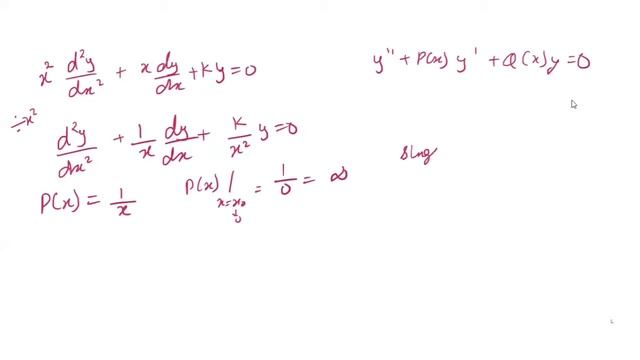 x² d²y/dx² + x dy/dx + Ky = 0
y'' + P(x) y' + Q(x) y = 0
÷x²
d²y/dx² + 1/x dy/dx + K/x² y = 0
P(x) = 1/x
P(x) |x=x₀ = 1/0 = ∞
↓
0
sing